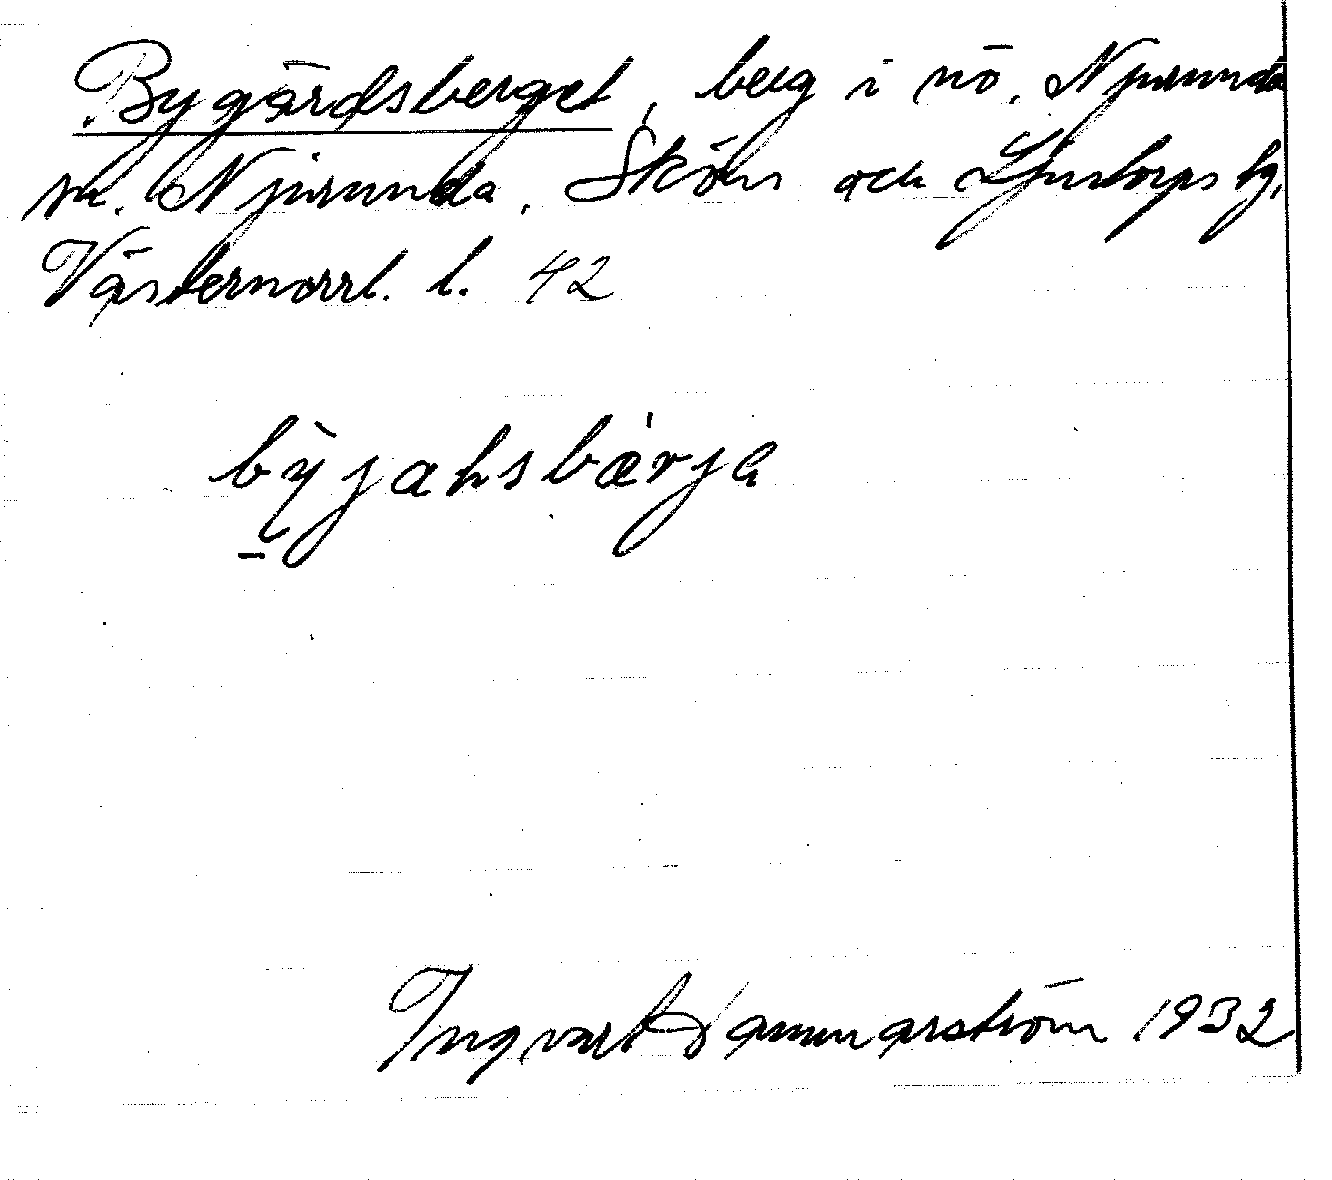 Bygärdsberget, berg i nö. Njurunda
sn. Njurunda, Sköns och Ljustorps tg,
Västernorrl. l. 42
bỳjahsbærja
Ingvart Hammarström 1932